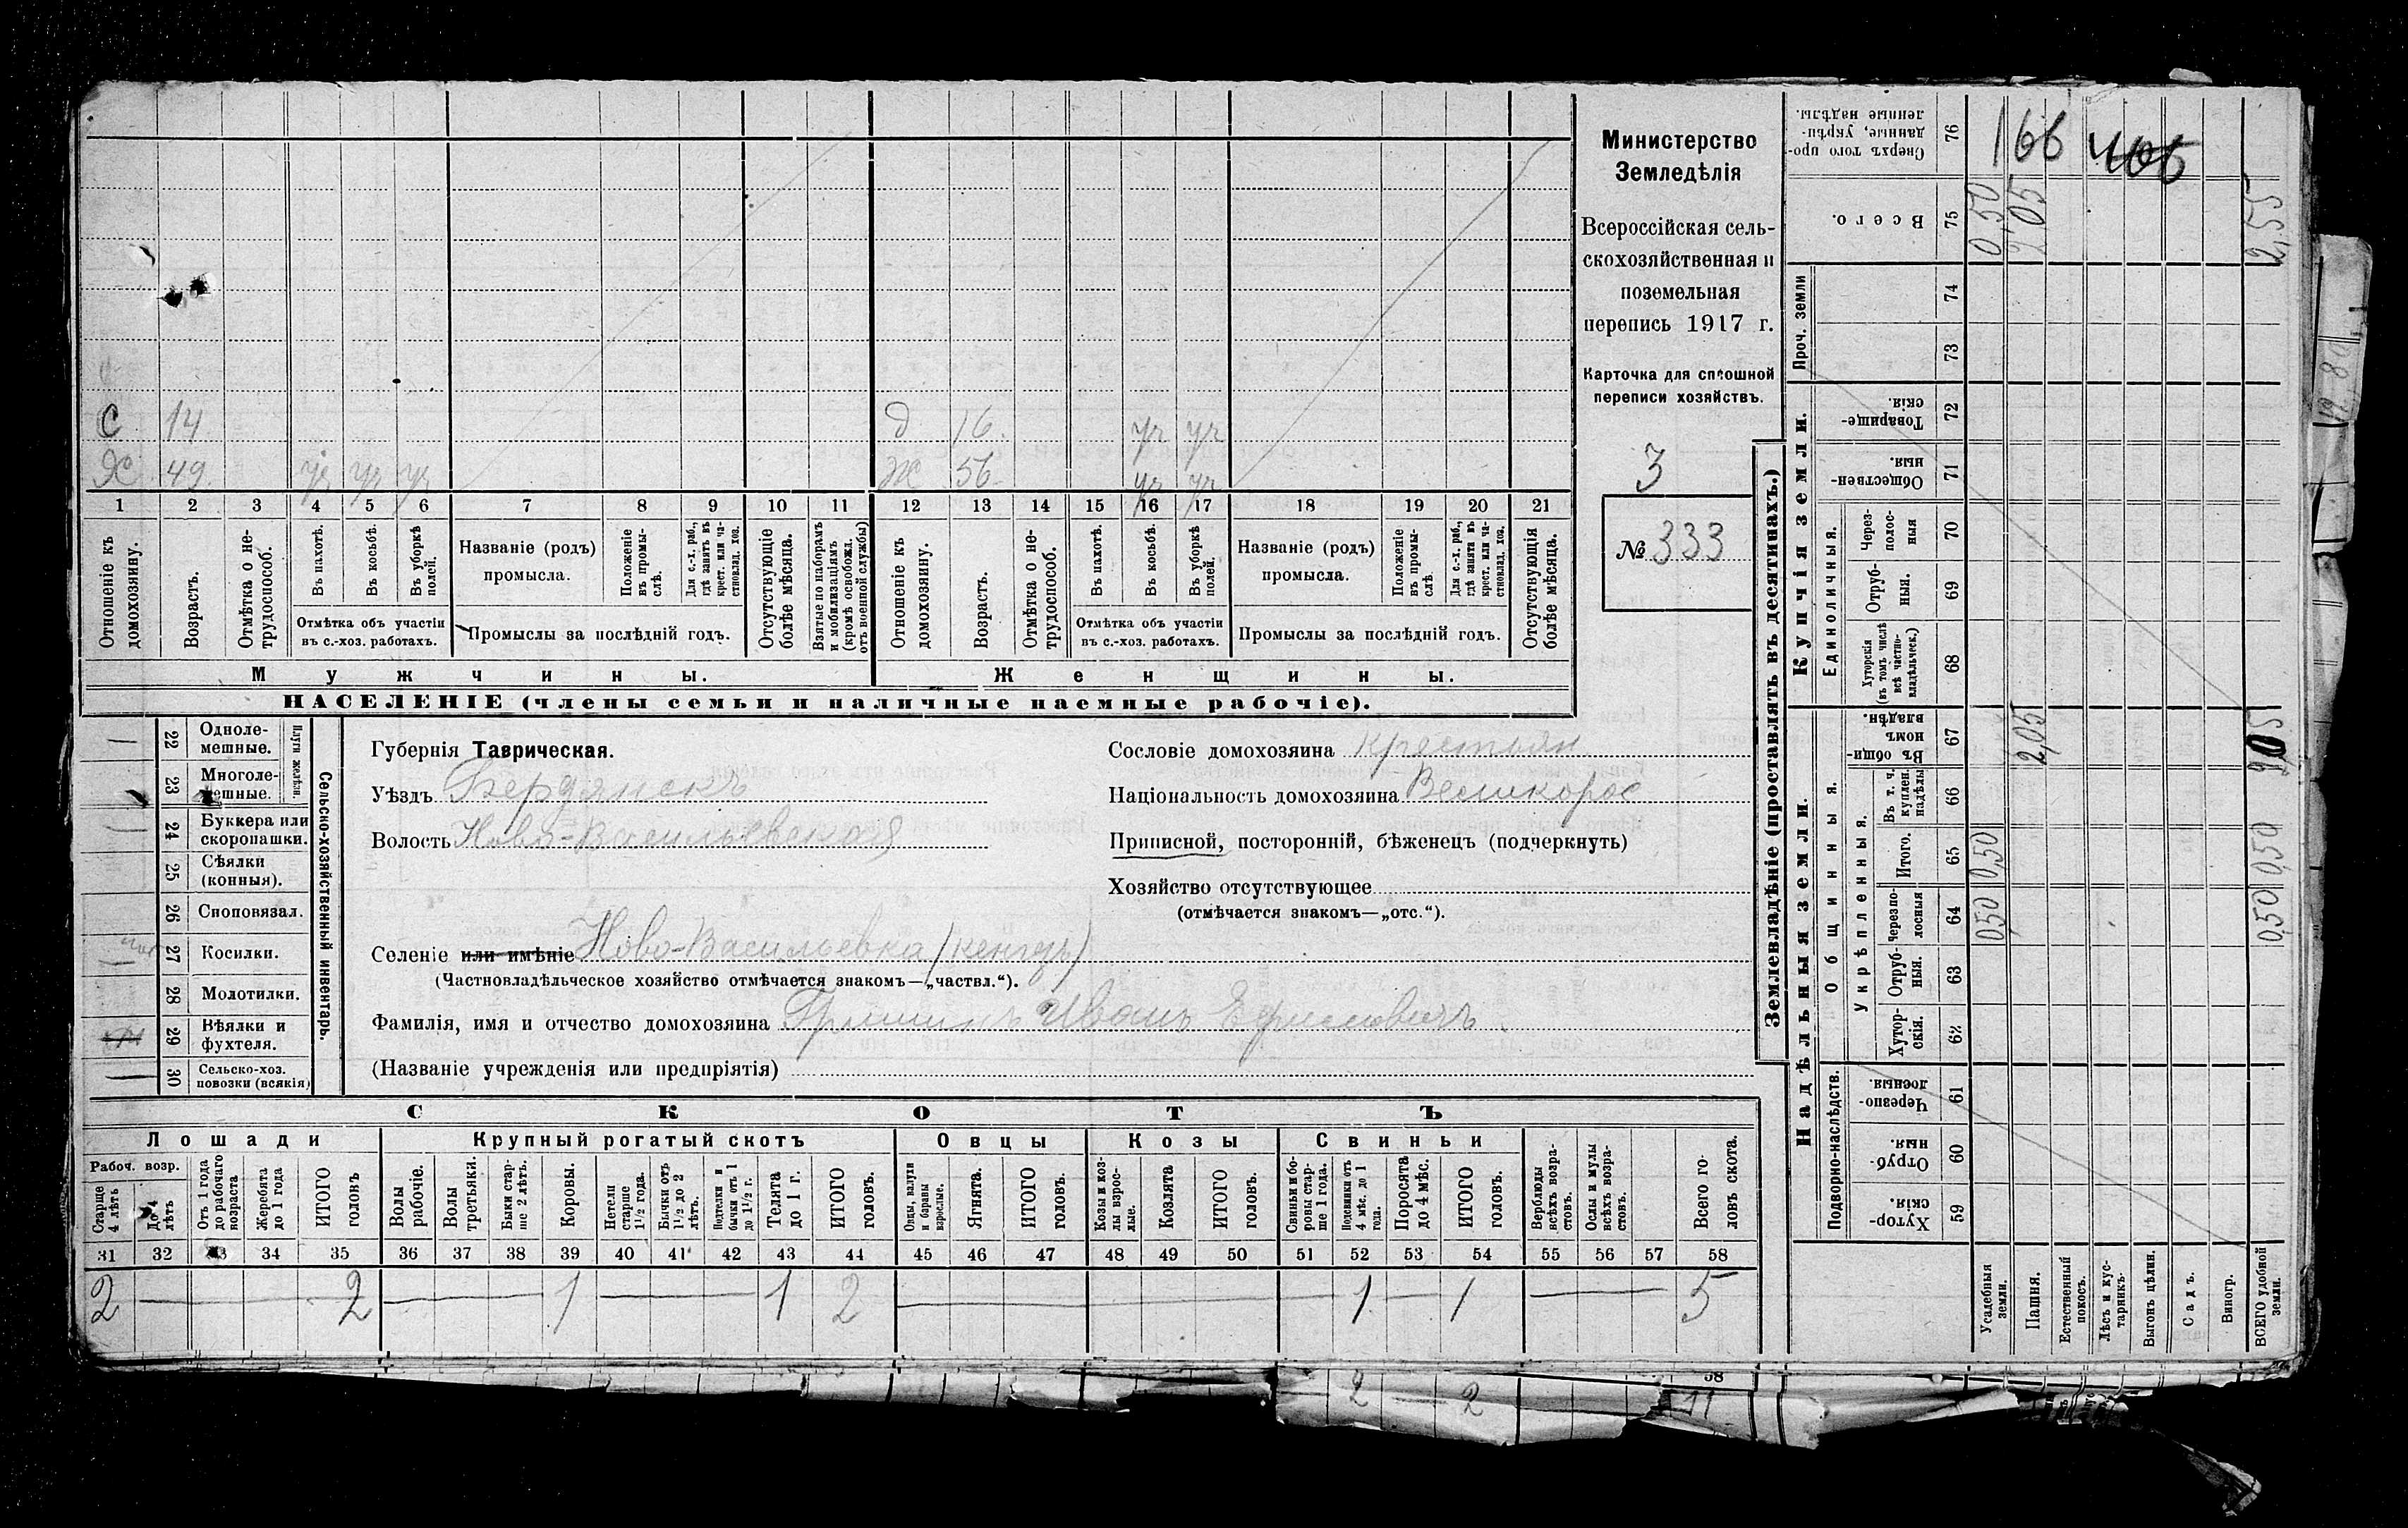 Министерство
Земледѣлія
Всероссійская сель-
скохозяйственная и
поземельная
перепись 1917 г.
Карточка для сплошной
переписи хозяйствъ.
3
№ 333
С 14 д 16
Ж 49 уч уч уч Ж 56 уч уч
уч уч
1 2 3 4 5 6 7 8 9 10 11 12 13 14 15 16 17 18 19 20 21
Отношеніе къ домохозяину.
Возрастъ.
Отмѣтка о не-трудоспособ.
Въ пахотѣ.
Въ косьбѣ.
Въ уборкѣ полей.
Отмѣтка объ участіи
въ с.-хоз. работахъ.
Названіе (родъ)
промысла.
Положеніе въ промы-слѣ.
Для с.-х. раб., гдѣ занятъ въ крест. или ча-стновлад. хоз.
Промыслы за послѣдній годъ.
Отсутствующіе болѣе мѣсяца.
Взятые по наборамъ и мобилизаціямъ (кромѣ освобожд. отъ военной службы)
Отношеніе къ домохозяину.
Возрастъ.
Отмѣтка о не-трудоспособ.
Въ пахотѣ.
Въ косьбѣ.
Въ уборкѣ полей.
Отмѣтка объ участіи
въ с.-хоз. работахъ.
Названіе (родъ)
промысла.
Положеніе въ промы-слѣ.
Для с.-х. раб., гдѣ занята въ крест. или ча-стновлад. хоз.
Промыслы за послѣдній годъ.
Отсутствующія болѣе мѣсяца.
Мужчины. Женщины.
НАСЕЛЕНІЕ (члены семьи и наличные наемные рабочіе).
22 Одноле-мешные.
23 Многоле-мешные.
Плуги желѣзн.
24 Буккера или скоропашки.
25 Сѣялки (конныя).
26 Сноповязал.
27 Косилки.
28 Молотилки.
29 Вѣялки и фухтеля.
30 Сельско-хоз. повозки (всякія)
Сельско-хозяйственный инвентарь.
Губернія Таврическая.
Уѣздъ Бердянскъ
Волость Ново-Васильевская
Селеніе или имѣніе Ново-Васильевка (кенгезъ)
(Частновладѣльческое хозяйство отмѣчается знакомъ—„частвл.“).
Фамилія, имя и отчество домохозяина Гришинъ Иванъ
(Названіе учрежденія или предпріятія)
Сословіе домохозяина крестьян.
Національность домохозяина Великорос
Приписной, посторонній, бѣженецъ (подчеркнуть)
Хозяйство отсутствующее
(отмѣчается знакомъ—„отс.“).
СКОТЪ
Лошади Крупный рогатый скотъ Овцы Козы Свиньи
Рабоч. возр.
Старше 4 лѣтъ
До 4 лѣтъ
Отъ 1 года до рабочаго возраста
Жеребята до 1 года
ИТОГО головъ
Волы рабочіе.
Волы третьяки.
Быки стар-ше 2 лѣтъ.
Коровы.
Нетели старше 1½ года.
Бычки отъ 1½ до 2 лѣтъ.
Подтелки и бычки отъ 1 до 1½ г.
Телята до 1 г.
ИТОГО головъ.
Овцы, валухи и бараны взрослые.
Ягнята.
ИТОГО головъ.
Козы и коз-лы взрос-лые.
Козлята
ИТОГО головъ.
Свиньи и бо-ровы стар-ше 1 года.
Подсвинки отъ 4 мѣс. до 1 года.
Поросята до 4 мѣс.
ИТОГО головъ.
Верблюды всѣхъ возра-стовъ.
Ослы и мулы всѣхъ возра-стовъ.
Всего го-ловъ скота.
31 32 33 34 35 36 37 38 39 40 41 42 43 44 45 46 47 48 49 50 51 52 53 54 55 56 57 58
2 — 2 — 1 — 1 2 — 1 — 1 — 5
Землевладѣніе (проставлять въ десятинахъ.)
Надѣльныя земли. Купчія земли. Проч. земли
Подворно-наслѣдств. Общинныя. Укрѣпленныя. Единоличныя.
59 Хутор-скія.
60 Отруб-ныя.
61 Черезпо-лосныя.
62 Хутор-скія.
63 Отруб-ныя.
64 Черезпо-лосныя
65 Итого.
66 Въ т. ч. куплен. надѣлы
67 Въ общи-номъ владѣн.
68 Хуторскія (въ томъ числѣ всѣ частно-владѣльческ.)
69 Отруб-ныя.
70 Через-полос-ныя
71 Обществен-ныя.
72 Товарище-скія.
73
74
75 Всего.
76 Сверхъ того про-данные, укрѣп-ленные надѣлы.
Усадебныя земли. 0,50 0,50 0,50
Пашня. 2,05 2,05
Естественный покосъ.
Лѣсъ и кус-тарникъ.
Выгонъ цѣлин.
Садъ.
Виногр.
ВСЕГО удобной земли. 0,50 0,50 2,05 2,55
166
2 2 11
58